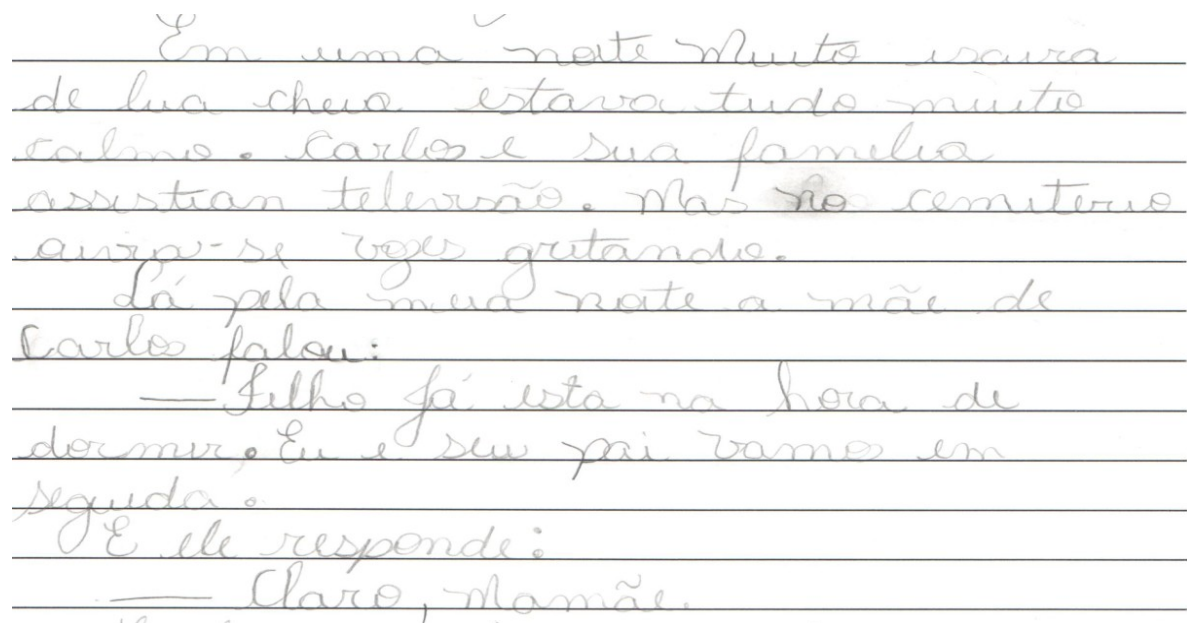 Em uma noite Muito iscura
de lua cheia estava tudo muito
calmo. Carlos e sua familia
assistian televisão. Mas no cemiterio
ouvia-se vozes gritando.
Lá pela meia noite a mãe de
Carlos falou:
— Filho já esta na hora de
dormir. Eu e seu pai vamos em
seguida.
E ele responde:
— Claro, Mamãe.